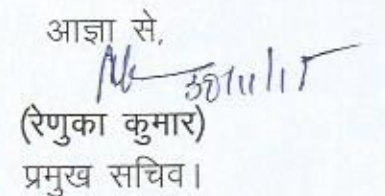 आज्ञा से,
30/11/15
(रेणुका कुमार)
प्रमुख सचिव।